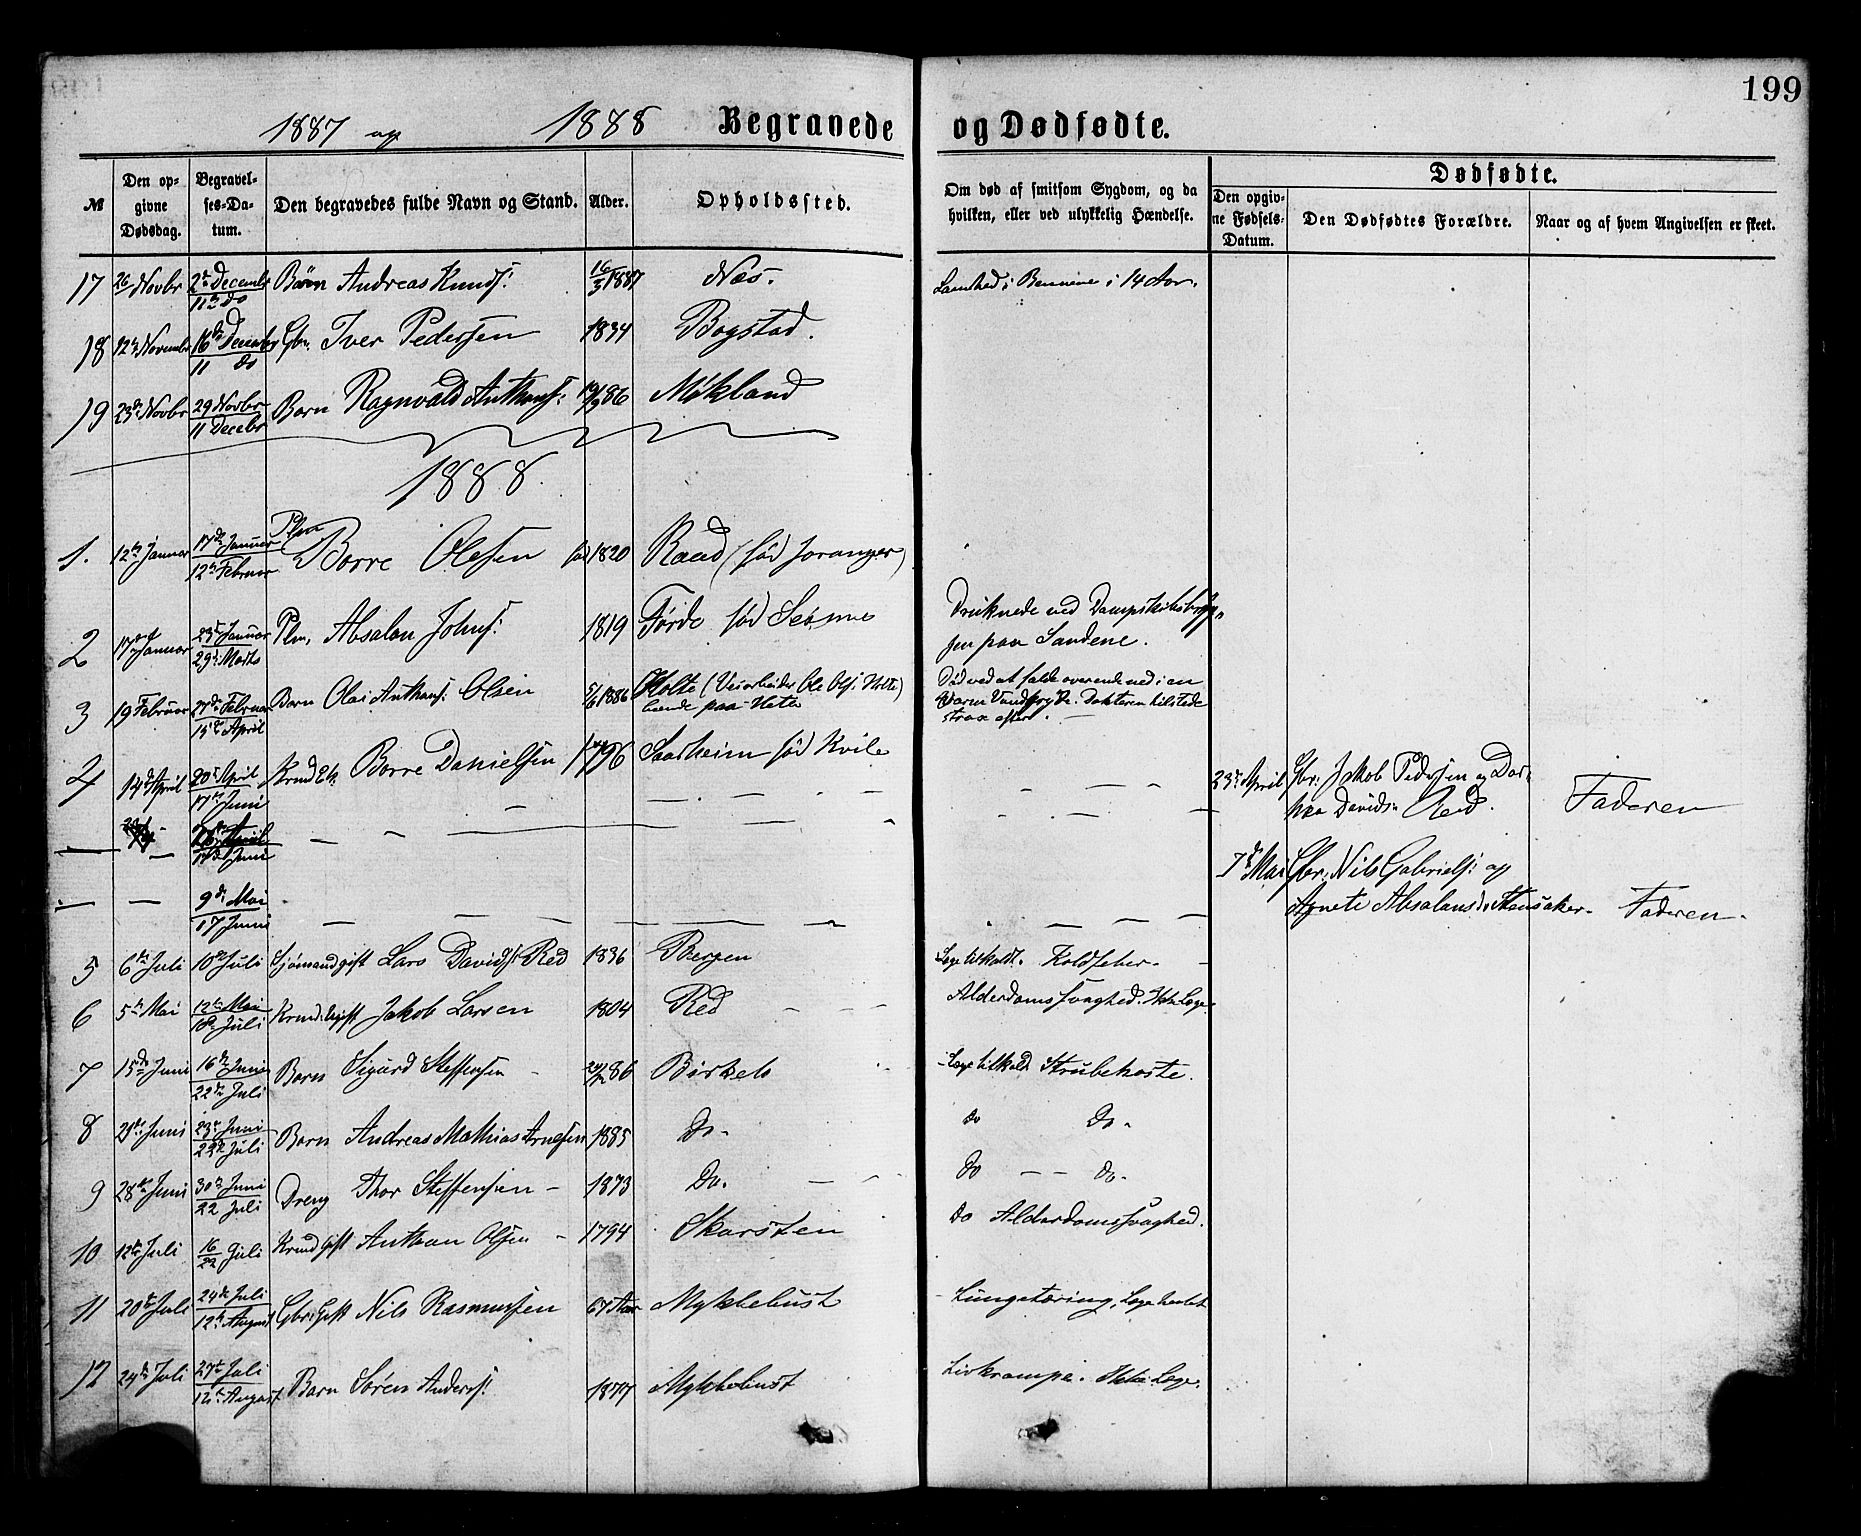 199
1887 og 1888 Begravede og Dødfødte.
№
Den opgivne Dødsdag.
Begravelses-Datum.
Den begravedes fulde Navn og Stand.
Alder.
Opholdssted.
Om død af smitsom Sygdom, og da hvilken, eller ved ulykkelig Hændelse.
Dødfødte.
Den opgivne Fødsels-Datum.
Den Dødfødtes Forældre.
Naar og af hvem Angivelsen er skeet.
17 26 Novbr 2 Decembr 11 do Barn Andreas Knuds: 16/3 1887 Nes. i 14 Aar.
18 12 Novembr 16 Decembr 11 do Gbr. Iver Pedersen 1834 Bogstad.
19 23 Novbr 29 Novbr 11 Decebr Barn Ragnvald Anthons: 19/9 86 Mökland
1888.
1. 12te Januar 17de Januar 12te Februar Plm Borre Olesen 1820 Raad (fød Joranger)
2 17 Januar 23 Januar 29 Marts Plm. Absalon Johns: 1819 Førde fød Seosnes Druknede ved Dampskibsbryg-
gen paa Sandene.
3 19 Februar 27 Februar 15 April Barn Olai Anthons: Olsen 5/6 1886 Holte (Veiarbeider Ole Ols: Holte) Død ved at falde overende ned i en
boende paa Varm Vandgryde. Doktoren tilstede
strax efter.
4 14 April 20 April 17 Juni Krmd Ek. Borre Danielsen 1796 Saarheim fød Kvile
23 April Gbr. Jakob Pedersen og Dor-
thea Davids: Red. Faderen
26 April 17 Juni
7 Mai Gbr. Nils Gabriels: og
9 Mai 17 Juni Agnete Absalonsd. Stensaker. Faderen.
5 6 Juli 10 Juli Sjømand gift Lars Davids: Red 1836 Bergen Læge tilkaldt. Koldfeber.
6 5 Mai 12te Mai 18 Juli Krmd. gift Jakob Larsen 1804 Red Alderdomssvaghed. Ikke Læge.
7 15 Juni 16 Juni 22 Juli Barn Sigurd Steffensen 86 Birkelo Læge tilkald Strubehoste.
8 21 Juni 23 Juni 22 Juli Barn Andreas Mathias Arnesen 1885 Do. Do Do.
9 28 Juni 30 Juni 22 Juli Dreng Thor Steffensen 1873 Do. Do Do.
10 12te Juli 16 22 Juli Krmd Gift Anthon Olsen 1794 Skarsten Do Alderdomssvaghed.
11 20 Juli 24 Juli 12te August Gbr. Gift Nils Rasmussen 67 Aar Myklebust Lungetæring, Læge hentet
12 24 Juli 27 Juli 12te August Barn Søren Anders: 1877 Myklebust Livkrampe. Ikke Læge.